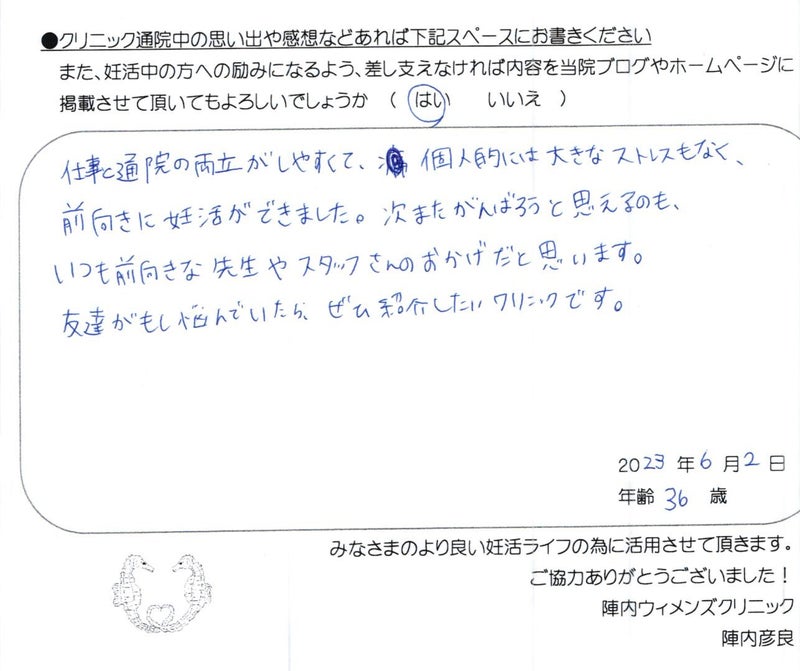 ●クリニック通院中の思い出や感想などあれば下記スペースにお書きください
また、妊活中の方への励みになるよう、差し支えなければ内容を当院ブログやホームページに
掲載させて頂いてもよろしいでしょうか （ はい いいえ ）
仕事と通院の両立がしやすくて、個人的には大きなストレスもなく、
前向きに妊活ができました。次またがんばろうと思えるのも、
いつも前向きな先生やスタッフさんのおかげだと思います。
友達がもし悩んでいたら、ぜひ紹介したいクリニックです。
2023 年 6 月 2 日
年齢 36 歳
みなさまのより良い妊活ライフの為に活用させて頂きます。
ご協力ありがとうございました！
陣内ウィメンズクリニック
陣内彦良